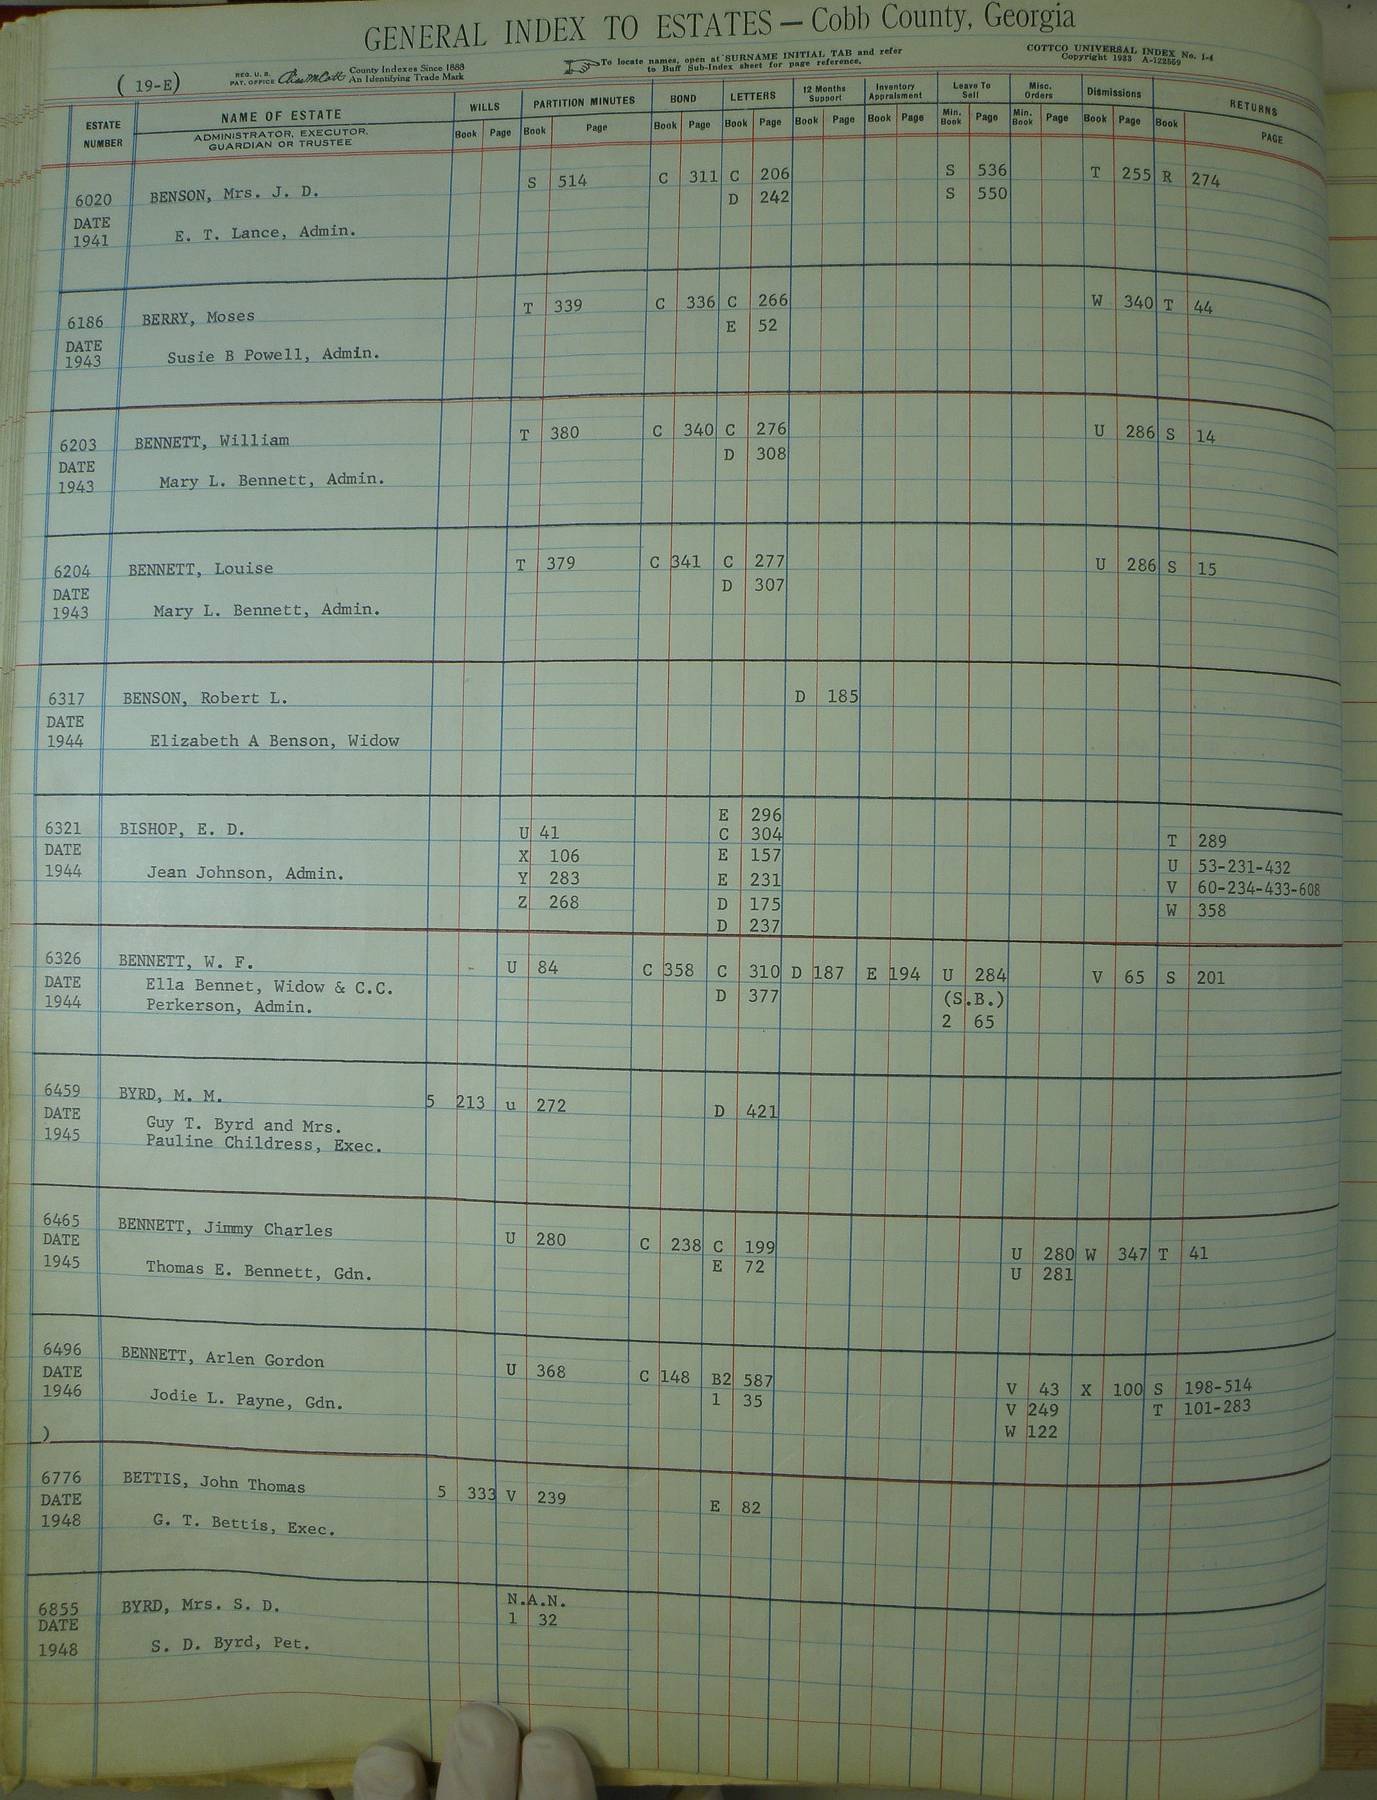 GENERAL INDEX TO ESTATES — Cobb County, Georgia
( 19-E)
REG. U. S. PAT. OFFICE County Indexes Since 1888 An Identifying Trade Mark
To locate names, open at SURNAME INITIAL TAB and refer to Buff Sub-Index sheet for page reference.
COTTCO UNIVERSAL INDEX No. 1-4
Copyright 1933 A-122559
ESTATE NUMBER NAME OF ESTATE WILLS PARTITION MINUTES BOND LETTERS 12 Months Support Inventory Appraisment Leave To Sell Misc. Orders Dismissions RETURNS
ADMINISTRATOR, EXECUTOR, GUARDIAN OR TRUSTEE Book Page Book Page Book Page Book Page Book Page Book Page Min. Book Page Min. Book Page Book Page Book PAGE
6020 BENSON, Mrs. J. D. S 514 C 311 C 206 S 536 T 255 R 274
D 242 S 550
DATE
1941 E. T. Lance, Admin.
6186 BERRY, Moses T 339 C 336 C 266 W 340 T 44
E 52
DATE
1943 Susie B Powell, Admin.
6203 BENNETT, William T 380 C 340 C 276 U 286 S 14
D 308
DATE
1943 Mary L. Bennett, Admin.
6204 BENNETT, Louise T 379 C 341 C 277 U 286 S 15
D 307
DATE
1943 Mary L. Bennett, Admin.
6317 BENSON, Robert L. D 185
DATE
1944 Elizabeth A Benson, Widow
E 296
6321 BISHOP, E. D. U 41 C 304 T 289
DATE X 106 E 157 U 53-231-432
1944 Jean Johnson, Admin. Y 283 E 231 V 60-234-433-608
Z 268 D 175 W 358
D 237
6326 BENNETT, W. F. - U 84 C 358 C 310 D 187 E 194 U 284 V 65 S 201
DATE Ella Bennet, Widow & C.C. D 377 (S.B.)
1944 Perkerson, Admin. 2 65
6459 BYRD, M. M. 5 213 u 272 D 421
DATE Guy T. Byrd and Mrs.
1945 Pauline Childress, Exec.
6465 BENNETT, Jimmy Charles U 280 C 238 C 199 U 280 W 347 T 41
DATE E 72 U 281
1945 Thomas E. Bennett, Gdn.
6496 BENNETT, Arlen Gordon U 368 C 148 B2 587 V 43 X 100 S 198-514
DATE 1 35 V 249 T 101-283
1946 Jodie L. Payne, Gdn. W 122
)
6776 BETTIS, John Thomas 5 333 V 239 E 82
DATE
1948 G. T. Bettis, Exec.
6855 BYRD, Mrs. S. D. N.A.N.
DATE 1 32
1948 S. D. Byrd, Pet.